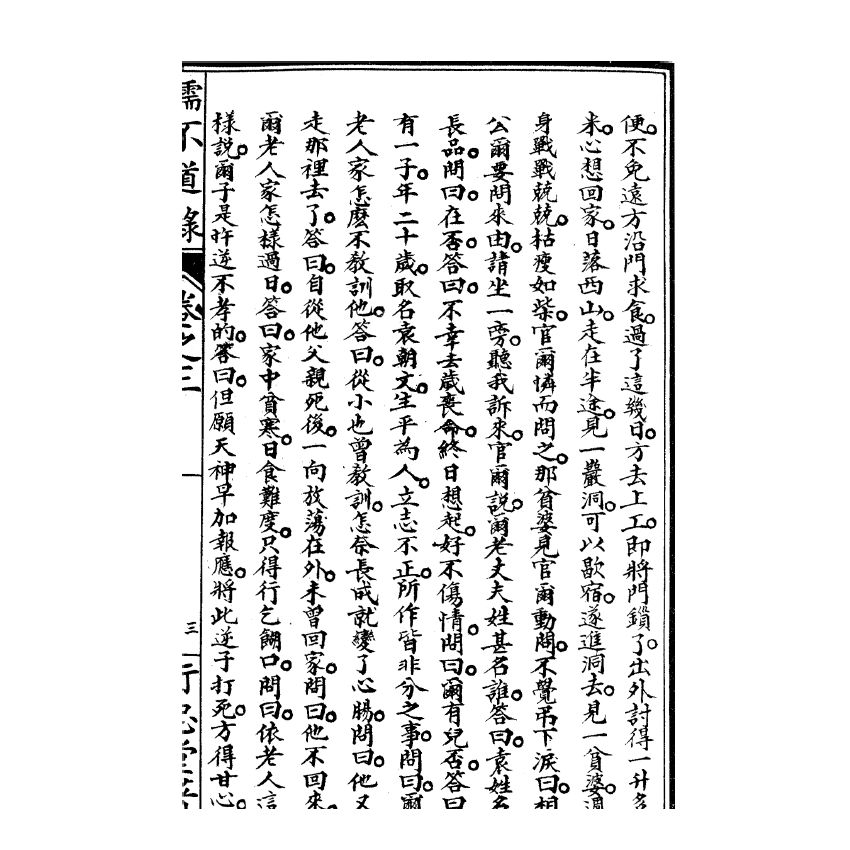 便。不免遠方沿門求食。過了這幾日。方去上工。即將門鎖了。出外討得一升多
米。心想回家。日落西山。走在半途。見一巖洞。可以歇宿。遂進洞去。見一貧婆。週
身戰戰兢兢。枯瘦如柴。官爾憐而問之。那貧婆見官爾動問。不覺吊下淚曰。相
公爾要問來由。請坐一旁。聽我訴來。官爾說。爾老丈夫姓甚名誰。答曰。袁姓名
長品。問曰。在否。答曰。不幸去歲喪命。終日想起。好不傷情。問曰。爾有兒否。答曰
有一子。年二十歲。取名袁朝文。生平為人。立志不正。所作皆非分之事。問曰。爾
老人家怎麼不教訓他。答曰。從小也曾教訓。怎奈長成就變了心腸。問曰。他又
走那裡去了。答曰。自從他父親死後。一向放蕩在外。未曾回家。問曰。他不回來。
爾老人家怎樣過日。答曰。家中貧寒。日食難度。只得行乞餬口。問曰。依老人這
樣說。爾子是忤逆不孝的。答曰。但願天神早加報應。將此逆子打死。方得甘心。
不道錄
卷之三
三